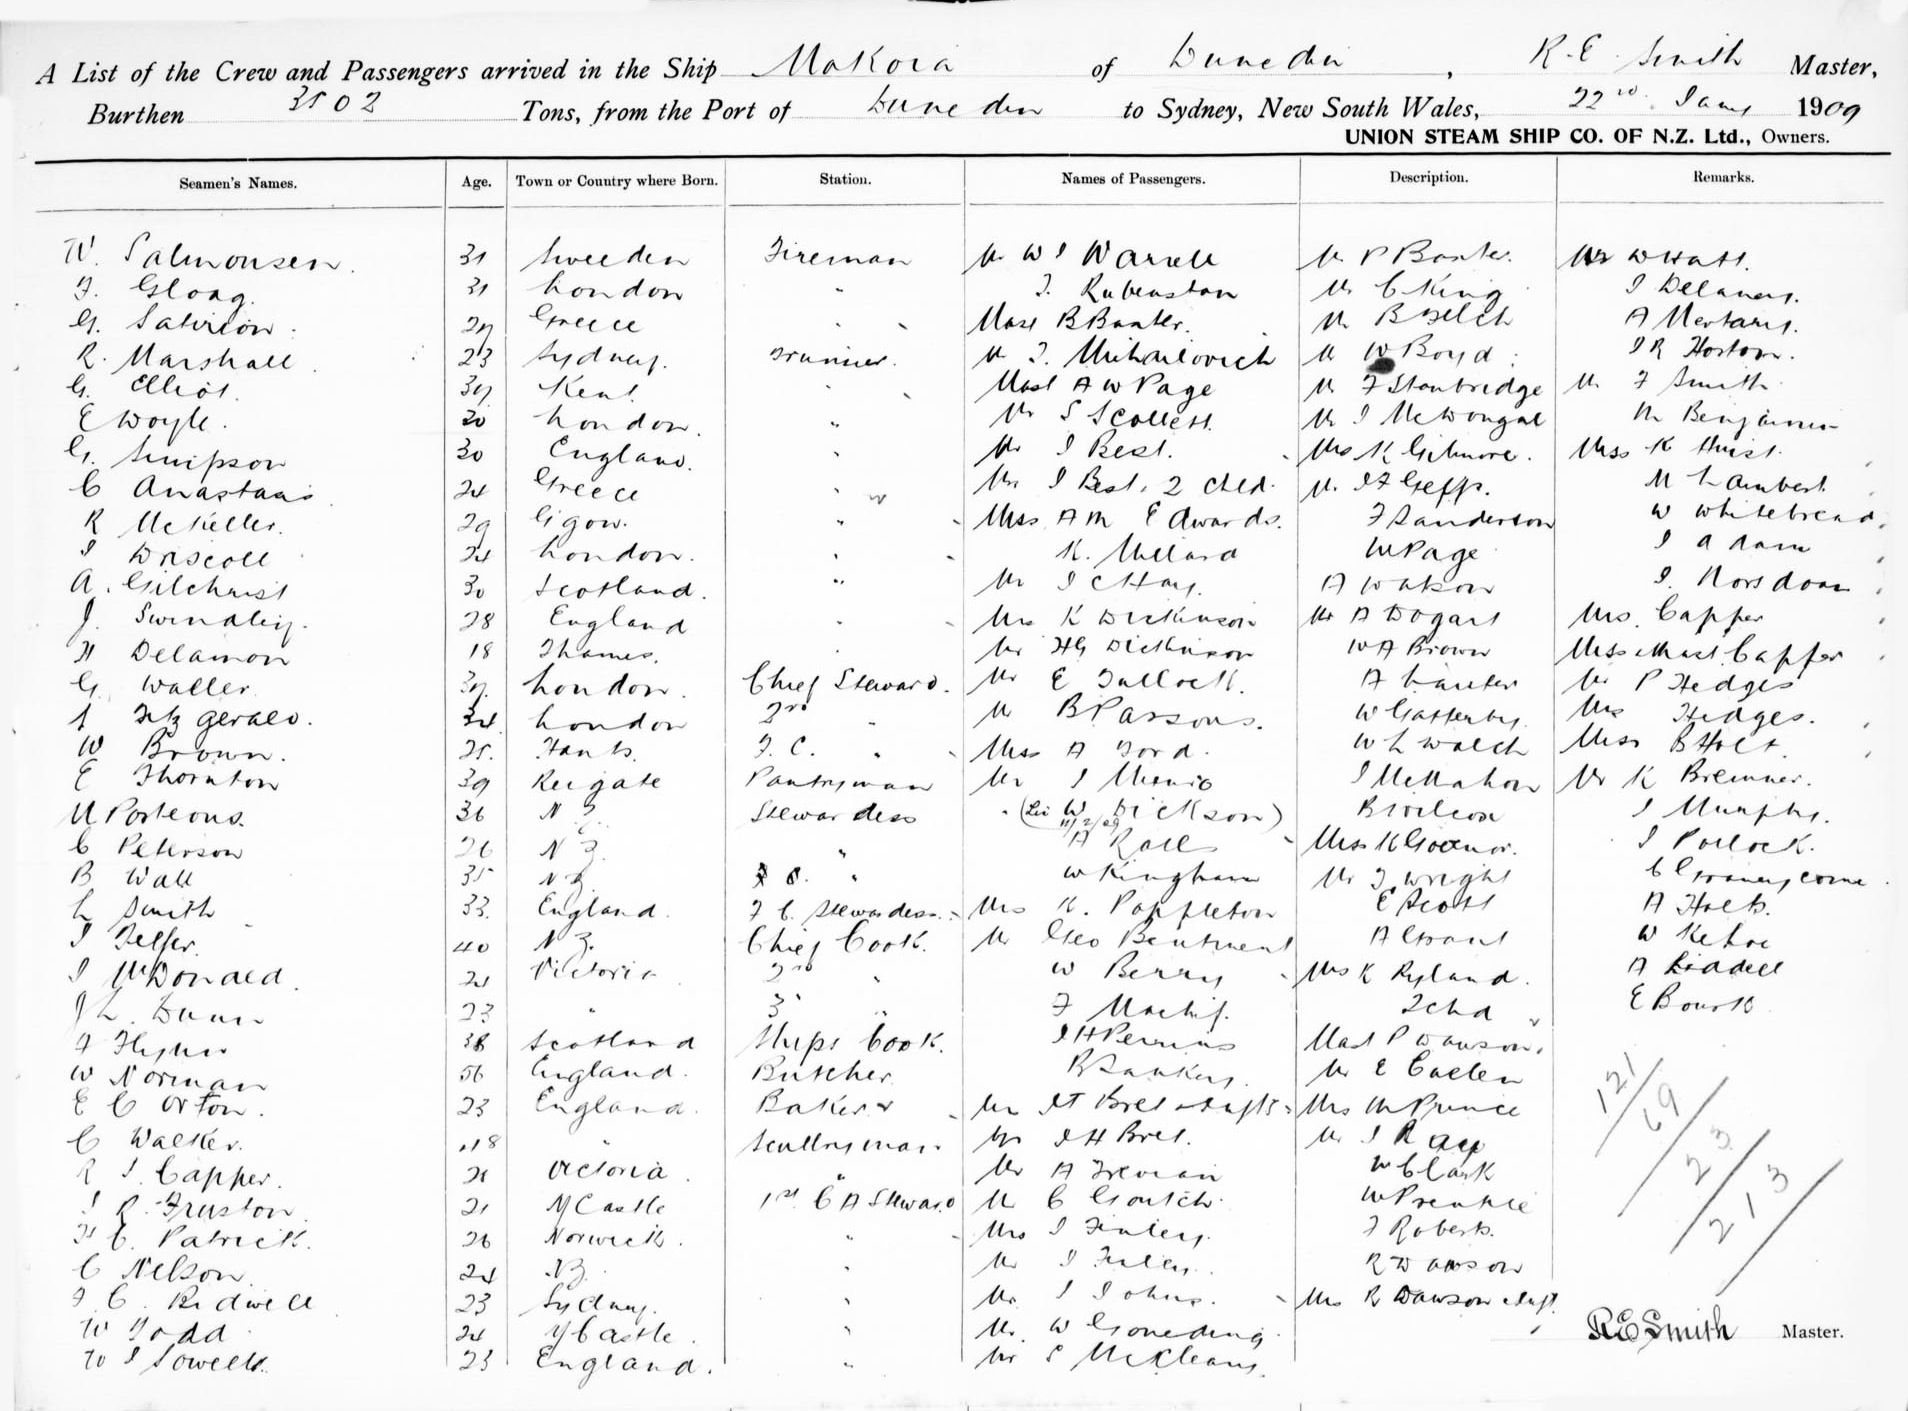 A List of the Crew and Passengers arrived in the Ship Mokoia of Dunedin, R. E. Smith Master,
Burthen 3502 Tons, from the Port of Dunedin to Sydney, New South Wales, 22nd Jany 1909
UNION STEAM SHIP CO. OF N.Z. Ltd., Owners.
Seamen's Names. Age. Town or Country where Born. Station. Names of Passengers. Description. Remarks.
W. Salmonsen 31 Sweden Fireman Mr W J Warrell Mr P Baxter. Mr W Hall.
F. Gloag. 31 London " J. Rubenstan Mr C King J Delaney.
G. Greece " Mast B Baxter. Mr B
R. Marshall 23 Sydney. Trimmer. Mr J. Mihailovich Mr W Boyd J R Horton.
G. Elliot. Kent. " Mast A W Page Mr F Stanbridge Mr F Smith
E Woyle. 20 London. " Mr S Scollett. Mr J McDougal M Benjamin
G. Simpson 30 England. " Mr J Best. Mrs K Gilmore. Miss K
C 24 Greece " Mrs J Best, 2 chld. Mr J F M Lambert
R McKeller. 29 Glgow. " Miss A M Edwards. F Sanderson W Whitebread
J Driscoll 24 London. " K. Millard W Page J Adam
A. Gilchrist 30 Scotland. " Mr J C Hay. A Watson J.
J. Swindley. 28 England " Mrs K Dickinson Mr A Bogart Mrs. Capper
H Delamon 18 Thames. " Mr H G Dickinson W A Brown Miss & Mast. Capper
G. Waller. London. Chief Steward. Mr E Tullock. A Mr P Hedges
J Fitzgerald. 34 London 2nd " Mr B Parsons. W Gatterby. Mrs Hedges.
W Brown. 25. Hants. F. C. " Miss A Ford. W L Walch Miss B Holt
E Thornton 39 Reigate Pantryman Mr J Munro J McMahon Mr K Bremner.
M Porteous. 36 N Z. Stewardess (Lic W Dickson) B Wilson J Murphy.
11/2/09
C Peterson 26 N Z. " A Miss K J Pollock.
B Wall 35 N Z. " W Kingham Mr J. Wright C
L Smith 33. England. F C. Stewardess. Mrs K. Poppleton E Scott A Holt.
J Telfer. 40 N Z. Chief Cook. Mr Geo A Grant W Kehoe
J McDonald. 21 Victoria 2nd " W Berry Mrs K Ryland. A Liddell
J L. Dunn 23 " 3 " F 2 chd E Bourk
F 38 Scotland Ships Cook. J H Perrins Mast P Dawson.
W Norman 56 England. Butcher. R Sankey. Mr E Cullen
E C Orton. 23 England. Baker Mr J T Mrs M Prince
C Walker. 18 " Scullryman. Mr J H Mr J Ray
R J. Capper. 21 Victoria. " Mr A W Clark
J R. Fruston 21 N Castle 1st C A Steward Mr C W
H C. Patrick. 26 Norwich. " Mrs J Finlay. J Roberts.
C Nelson 24 N Z. " Mr J R Dawson
F. C. Bidwell 23 Sydney. " Mr. J Johns. Mrs R Dawson & Inft.
W Todd 24 N Castle. " Mr. W
W J Sowells. 23 England. " Mr S McCleary.
121/69/23/213
R E Smith Master.